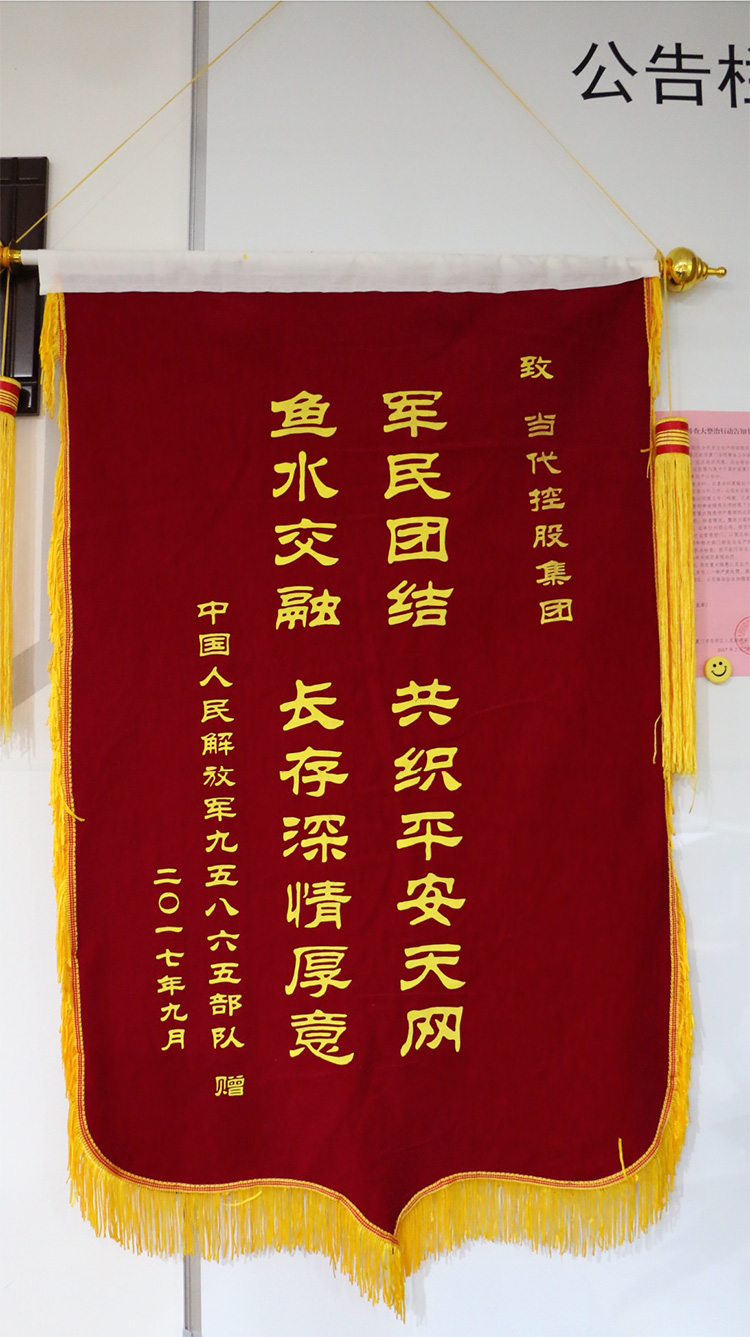 公告栏
致 当代控股集团
军民团结 共织平安天网
鱼水交融 长存深情厚意
中国人民解放军九五八六五部队 赠
二〇一七年九月